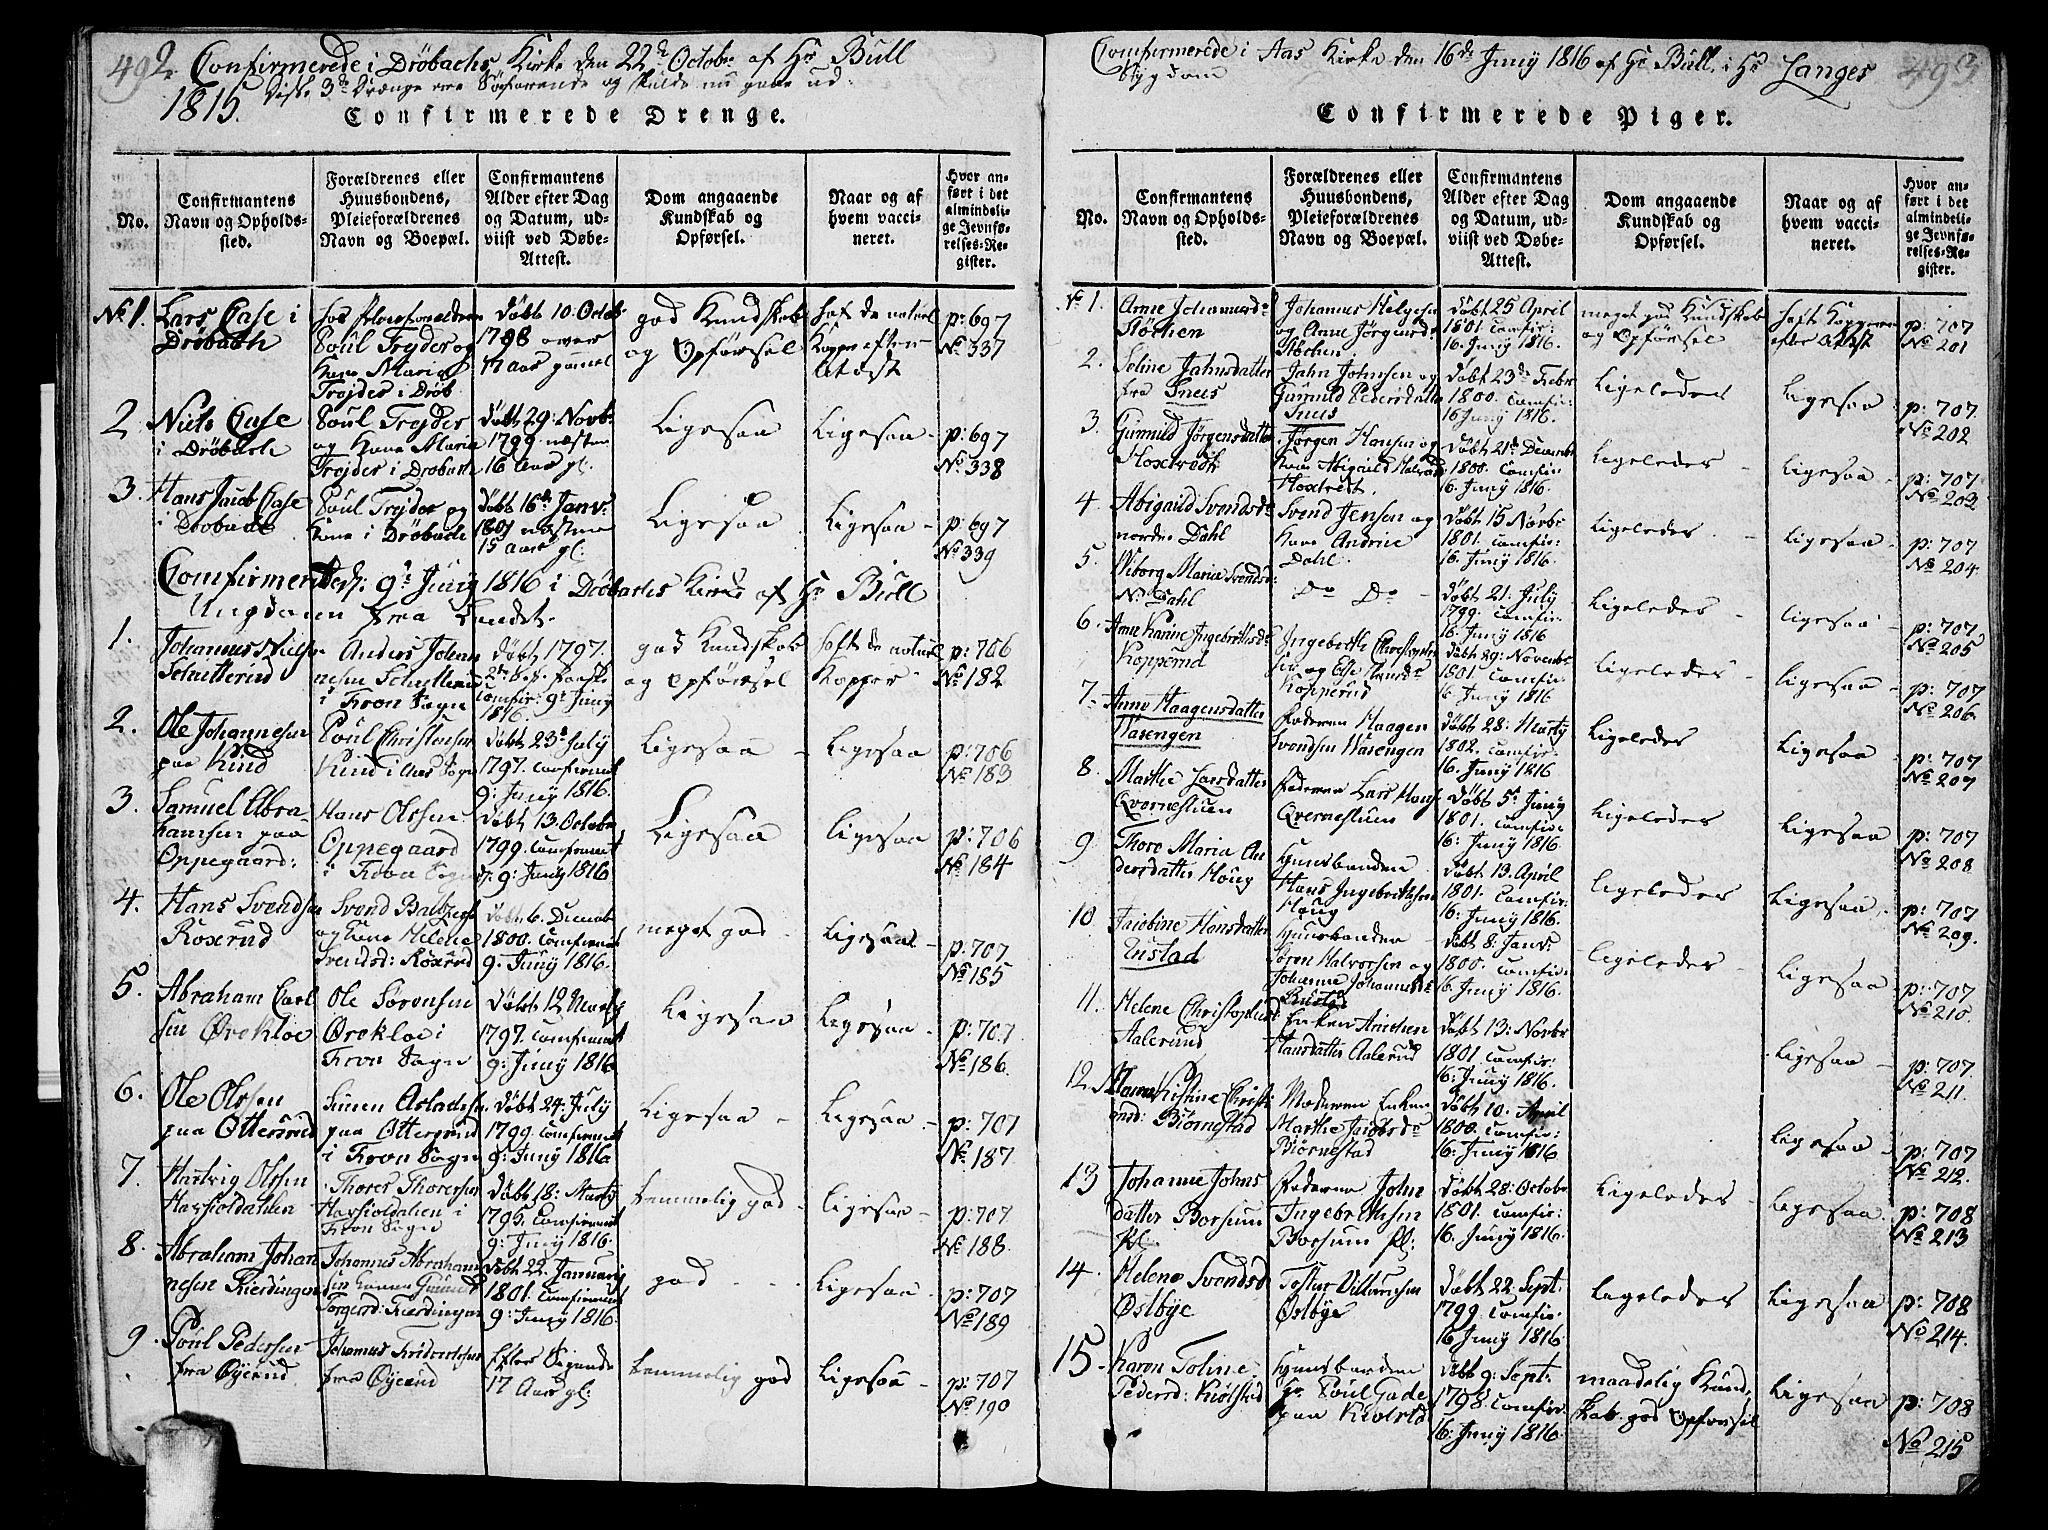 492 Confirmerede i Dröbachs Kirke den 22de Octobr. af Hr. Bull
1815. Disse 3de Drænge ere Söefarende og skulde nu gaae ud.
Confirmerede Drenge.
No.
Confirmantens
Navn og Opholds-
sted.
Forældrenes eller
Huusbondens,
Pleieforældrenes
Navn og Boepæl.
Confirmantens
Alder efter Dag
og Datum, ud-
viist ved Døbe-
Attest.
Dom angaaende
Kundskab og
Opførsel.
Naar og af
hvem vacci-
neret.
Hvor an-
ført i det
almindeli-
ge Jevnfø-
relses-Re-
gister.
No 1.
Lars Case i
Dröbach
hos Pleieforældrene
Poul Trÿder og
Kone Maria
Trojder i Dröb.
Döbt 10 Octob.
1798 over
17 Aar gammel
god Kundskab
og Opförsel
haft de naturl.
Kopper efter
Attest
p: 697
No 337
2
Niels Case
i Dröbach
Poul Tryder
og Kone Maria
Trojder i Drobach
Döbt 29. Novbr.
1799 næsten
16 Aar gl.
Ligesaa
Ligesaa
p: 697
No 338
3.
Hans Jacob Case
i Drobach
Poul Trÿder og
Kone i Dröbach
Döbt 16de Janv.
1801 næsten
15 Aar gl.
Ligesaa
Ligesaa
p: 697
No 339
Comfirmerede d. 9de Junÿ 1816 i Dröbachs Kirke af Hr. Bull
Ungdommen fra Landet.
1.
Johannes Niels
Schutterud
Anders Johan
nesen Schutterud
i Fron Sogn
Döbt 1797.
2den Søn. Faste
Comfir: 9de Junÿ
1816.
god Kundskab
og Opförsel
haft de naturl.
Kopper
p: 706
No 182
2.
Ole Johannesen
paa Kind
Poul Christensen
Kind i Aas Sogn
Döbt 23de July
1797. Comfirmeret
9: Junÿ 1816.
Ligesaa
Ligesaa
p: 706
No 183
3.
Samuel Abra
hamsen paa
Oppegaard:
Hans Olssen
Oppegaard
i Fron Sogn
Döbt 13. Octobr
1799. Comfirmeret
d. 9: Junÿ 1816
Ligesaa
Ligesaa
p: 706
No 184
4.
Hans Svendsen
Roxerud
Svend Baltzers.
og Kone Helene
Svendsd: Roxerud
Döbt 6. Decemb.
1800. Comfirmeret
9. Junÿ 1816.
meget god
Ligesaa
p: 707
No 185
5.
Abraham Carl
sen Örekloe
Ole Sörensen
Örekloe i
Fron Sogn
Döbt 12 Martj
1797. Comfirmeret
9: Junÿ 1816
Ligesaa
Ligesaa
p: 707
No 186
6.
Ole Olssen
paa Ottersrud
Simen Aslacksen
paa Ottersrud
i Fron Sogn
Döbt 24. July
1799. Comfirmeret
9: Junÿ 1816
Ligesaa
Ligesaa
p: 707
No 187
7.
Hartvig Olssen
Havsioldahlen
Thores Thoresen
Havsioldahlen i
Fron Sogn
Döbt 18. Martj
1795. Comfirmeret
9: Junÿ 1816.
temmelig god
Ligesaa
p: 707.
No 188.
8.
Abraham Johan
nesen Fierdingen
Johannes Abraham
sen Konen Gunild
Torgersd: Fierdingen
Döbt 22. Januarÿ
1801. Comfirmeret
9: Junÿ 1816.
god
Ligesaa
p: 707
No 189
9.
Poul Pedersen
fra Öÿerud
Johannes Fridrichsen
fra Öÿerud
Efter Sigende
17 Aar gl:
temmelig god
Ligesaa
p: 707
No 190
Comfirmerede i Aas Kirke den 16de Junÿ 1816 af Hr. Bull, i Hr. Langes 493
Sÿgdom
Confirmerede Piger.
No.
Confirmantens
Navn og Opholds-
sted.
Forældrenes eller
Huusbondens,
Pleieforældrenes
Navn og Boepæl.
Confirmantens
Alder efter Dag
og Datum, ud-
viist ved Døbe-
Attest.
Dom angaaende
Kundskab og
Opførsel.
Naar og af
hvem vacci-
neret.
Hvor an-
ført i det
almindeli-
ge Jevnfø-
relses-Re-
gister.
No 1.
Anne Johannesd.
Stöchen
Johannes Helgesen
og Anne Jörgensd.
Stöchen
Döbt 25 April
1801 Comfir:
16. Junÿ 1816.
meget god Kundskab
og Opförsel
haft Kopperne
efter Attest
p: 707
No 201
2.
Soline Jahnsdatter
fra Snees
Jahn Johnsen og
Gunnild Pedersdatter
Snees
Döbt 23de Febr
1800. Comfir:
16 Junÿ 1816.
Ligeledes
Ligesaa
p: 707.
No 202
3.
Gunnild Jörgensdatter
Hoxtvedt
Jörgen Hansen og
Kone Abigaild Halvorsd
Hoxtvedt.
Döbt 21de Decembr
1800. Comfir:
16. Junÿ 1816.
Ligeledes
Ligesaa
p: 707
No 203
4.
Abigaild Svendsd.
nordre Dahl
Svend Jensen og
Kone Andrine
Dahl.
Döbt 15 Novbr
1801. Comfir:
16. Junÿ 1816.
Ligeledes
Ligesaa
p: 707
No 204.
5.
Wiborg Maria Svendsd:
N: Dahl
Do Do
Döbt 21. July
1799. Comfir
16. Junÿ 1816
Ligeledes
ligesaa
p: 707
No 205
6.
Anne Karine Ingebrethsd.
Kopperud
Ingebreth Christophers
sen og Else Hansd.
Kopperud
Döbt 29. Novembr
1801 Comfir
16 Junÿ 1816
Ligeledes
Ligesaa
p: 707
No 206
7.
Anne Haagensdatter
Wasengen
Faderen Haagen
Svendsen Wasengen
Döbt 28: Martj
1802. Comfir:
16. Junÿ 1816
Ligeledes
Ligesaa
p: 707
No 207
8.
Marthe Larsdatter
Qvernestuen
Faderen Lars Hans.
Qvernestuen
Döbt 5te Junÿ
1801. Comfir:
16: Junÿ 1816
Ligeledes
Ligesaa
p: 707
No 208
9
Thore Maria An
dersdatter Houg
Huusbonden
Hans Ingebrethsen
Houg
Döbt 13. April
1801. Comfir:
16: Junÿ 1816.
ligeledes
Ligesaa
p: 707
No 209.
10
Jacobine Hansdatter
Enstad
Huusbonden
Sören Halvorsen og
Johanne Johannesd.
Döbt 8: Janv:
1800. Comfir:
16. Junÿ 1816.
ligeledes
Ligesaa
p: 707
No 210.
11.
Helene Christophersd
Aalerud
Enken Anichen
Hansdatter Aalerud
Döbt 13: Novbr
1801 Comfir:
16: Junÿ 1816.
Ligesaa
p: 707.
No 211.
12.
Anne Kirstine Christi
ansd: Biörnestad
Moderen Enken
Marthe Jacobsd.
Biörnestad
Döbt 10. April
1800. Comfir:
16: Junÿ 1816
Ligesaa
p: 707
No 212.
13
Johanne Johns
datter Borsum
pl.
Faderen John
Ingebrethsen
Borsum pl:
Döbt 28: Octobr
1801. Comfir:
16. Junÿ 1816.
Ligeledes
Ligesaa
p: 708
No 213
14.
Helene Svendsd
Östbÿe
Östbÿe
Döbt 22. Sept.
1799. Comfir
16 Junÿ 1816.
Ligeledes
Ligesaa
p: 708
No 214.
15.
Karen Toline
Pedersd: Kiölstad
Huusbonden
Hr Poul Gade
paa Kiölstad
Döbt 9: Sept:
1798. Comfir:
16: Junÿ 1816.
maadelig Kund,,
skab. god Opförsel
Ligesaa
p: 708
No 215